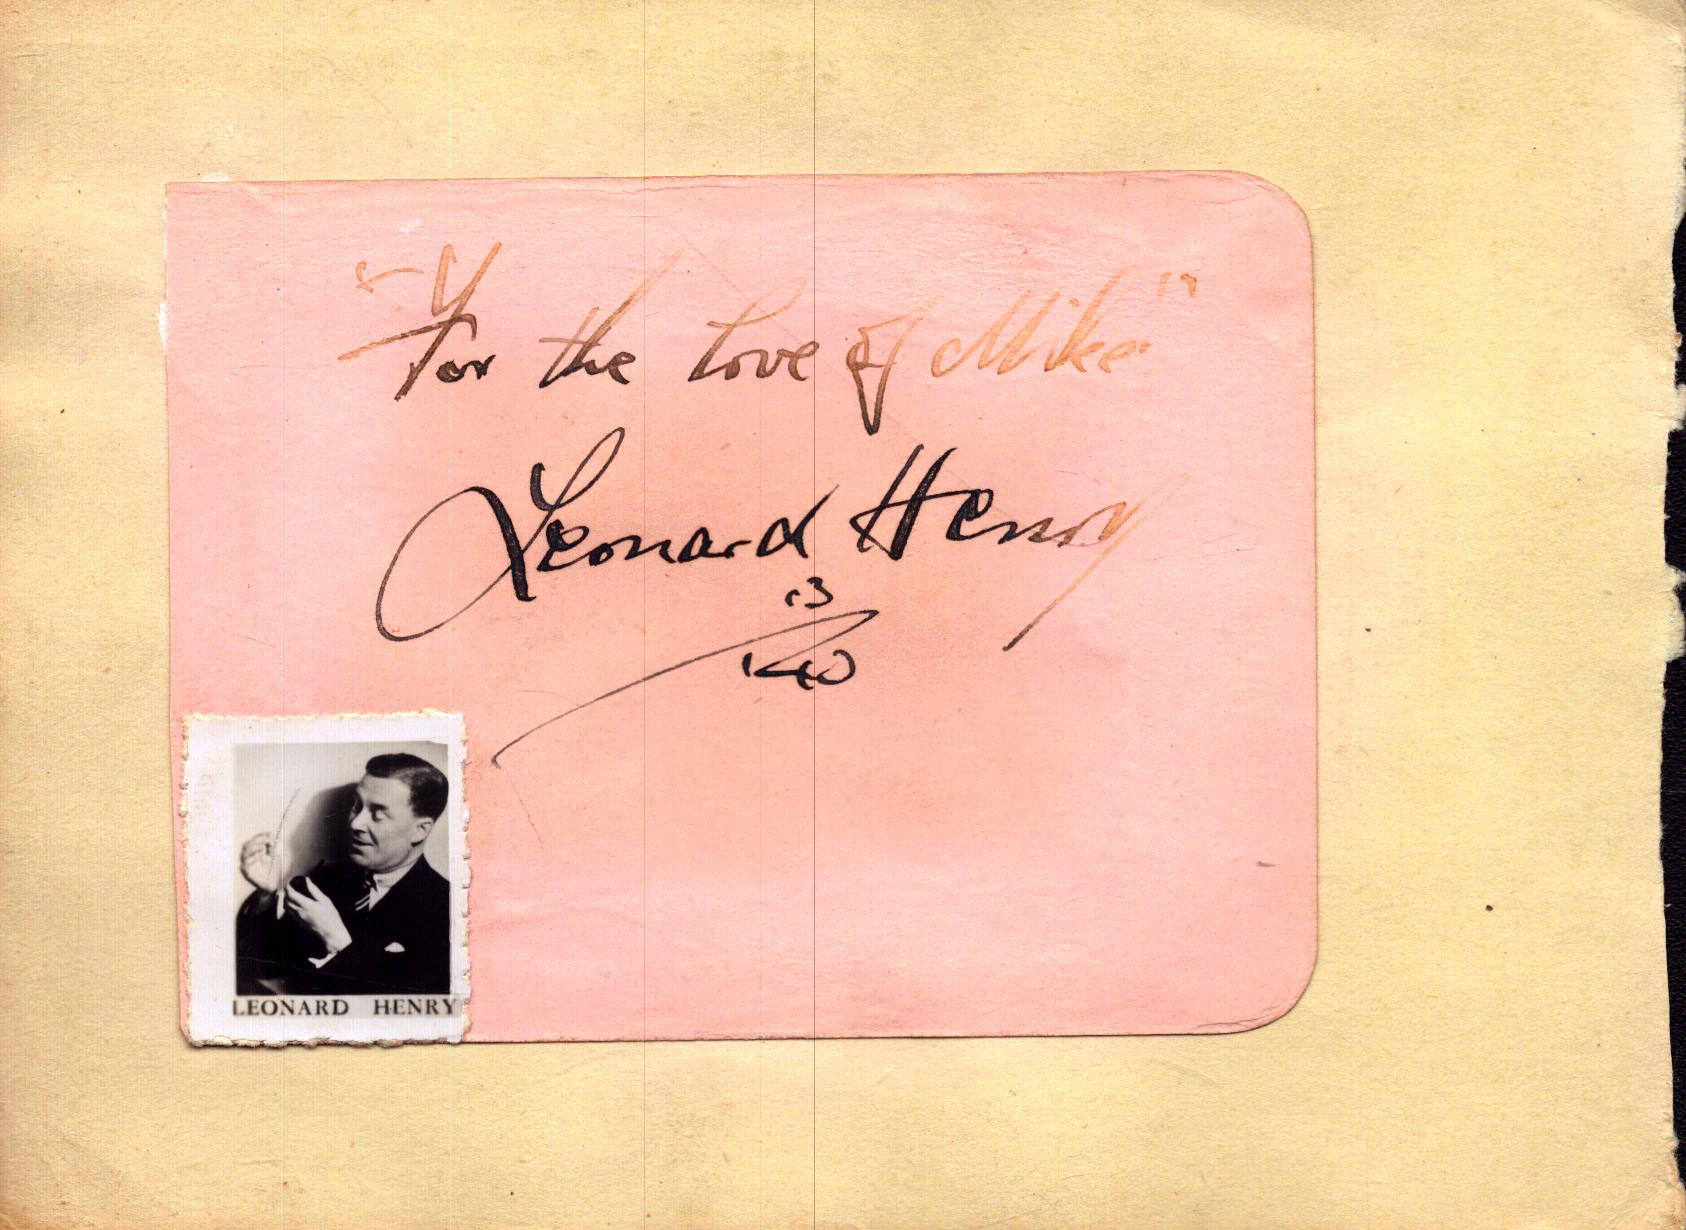 "For the Love of Mike"
Leonard Henry
13
1940
LEONARD HENRY